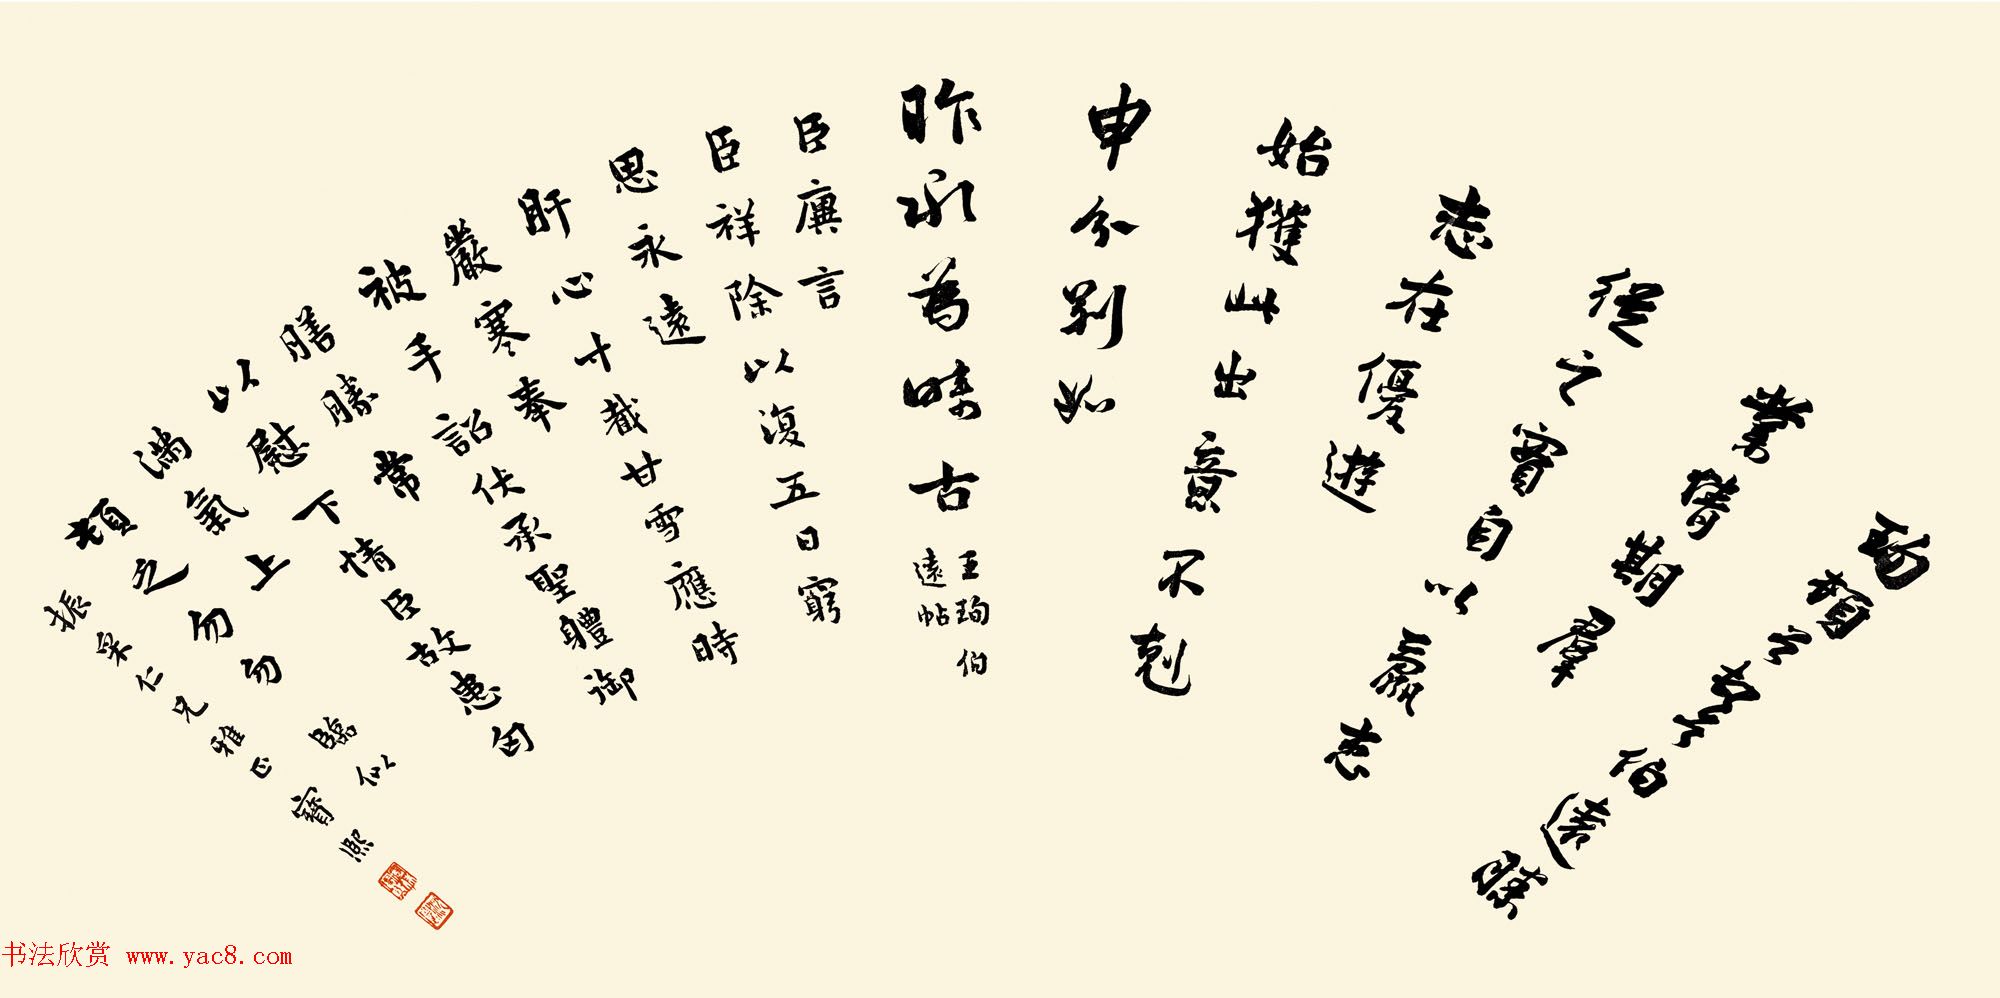 珣頓首頓首伯遠勝
業情期羣
從之寶自以羸患
志在優遊
始獲此出意不剋
申分別如
昨永為疇古
王珣伯
遠帖
臣廙言
臣祥除以復五日窮
思永遠
肝心寸截甘雪應時
嚴寒奉
被手詔伏承聖體御
膳勝常
以慰下情臣故患匈
滿氣上
頓之勿勿 臨似
振杲仁兄雅正 寶熙
书法欣赏 www.yac8.com